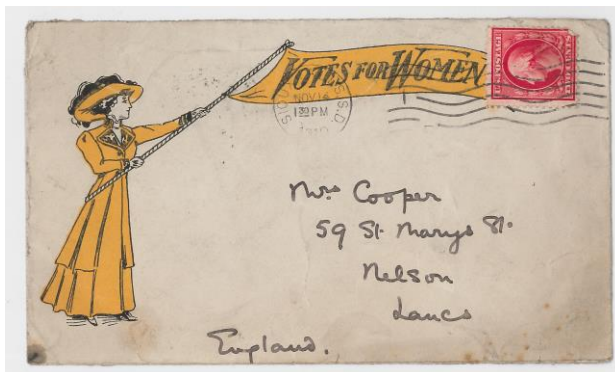 VOTES FOR WOMEN
NOV 14
1 30 PM
S.D.
Mrs Cooper
59 St. Marys St.
Nelson
Lancs
England.